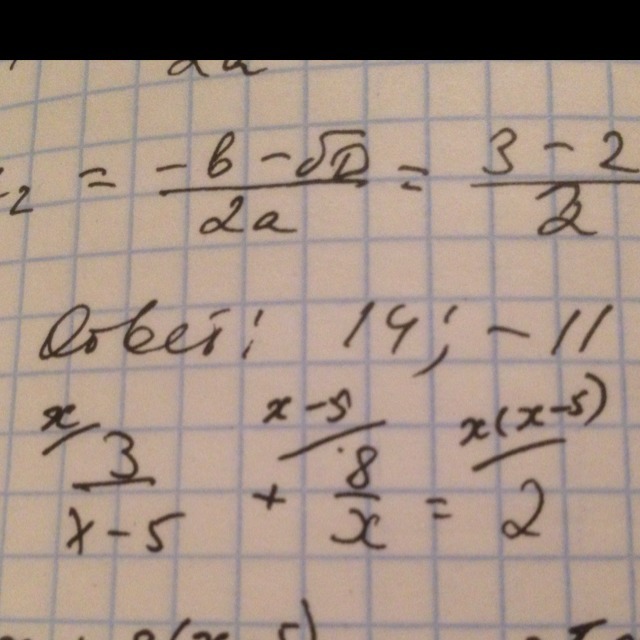 2a
₂ = (-b - √D)/(2a) = (3 - 2)/2
Ответ: 14; -11
x/ x-5/ x(x-5)/
3/(x-5) + 8/x = 2